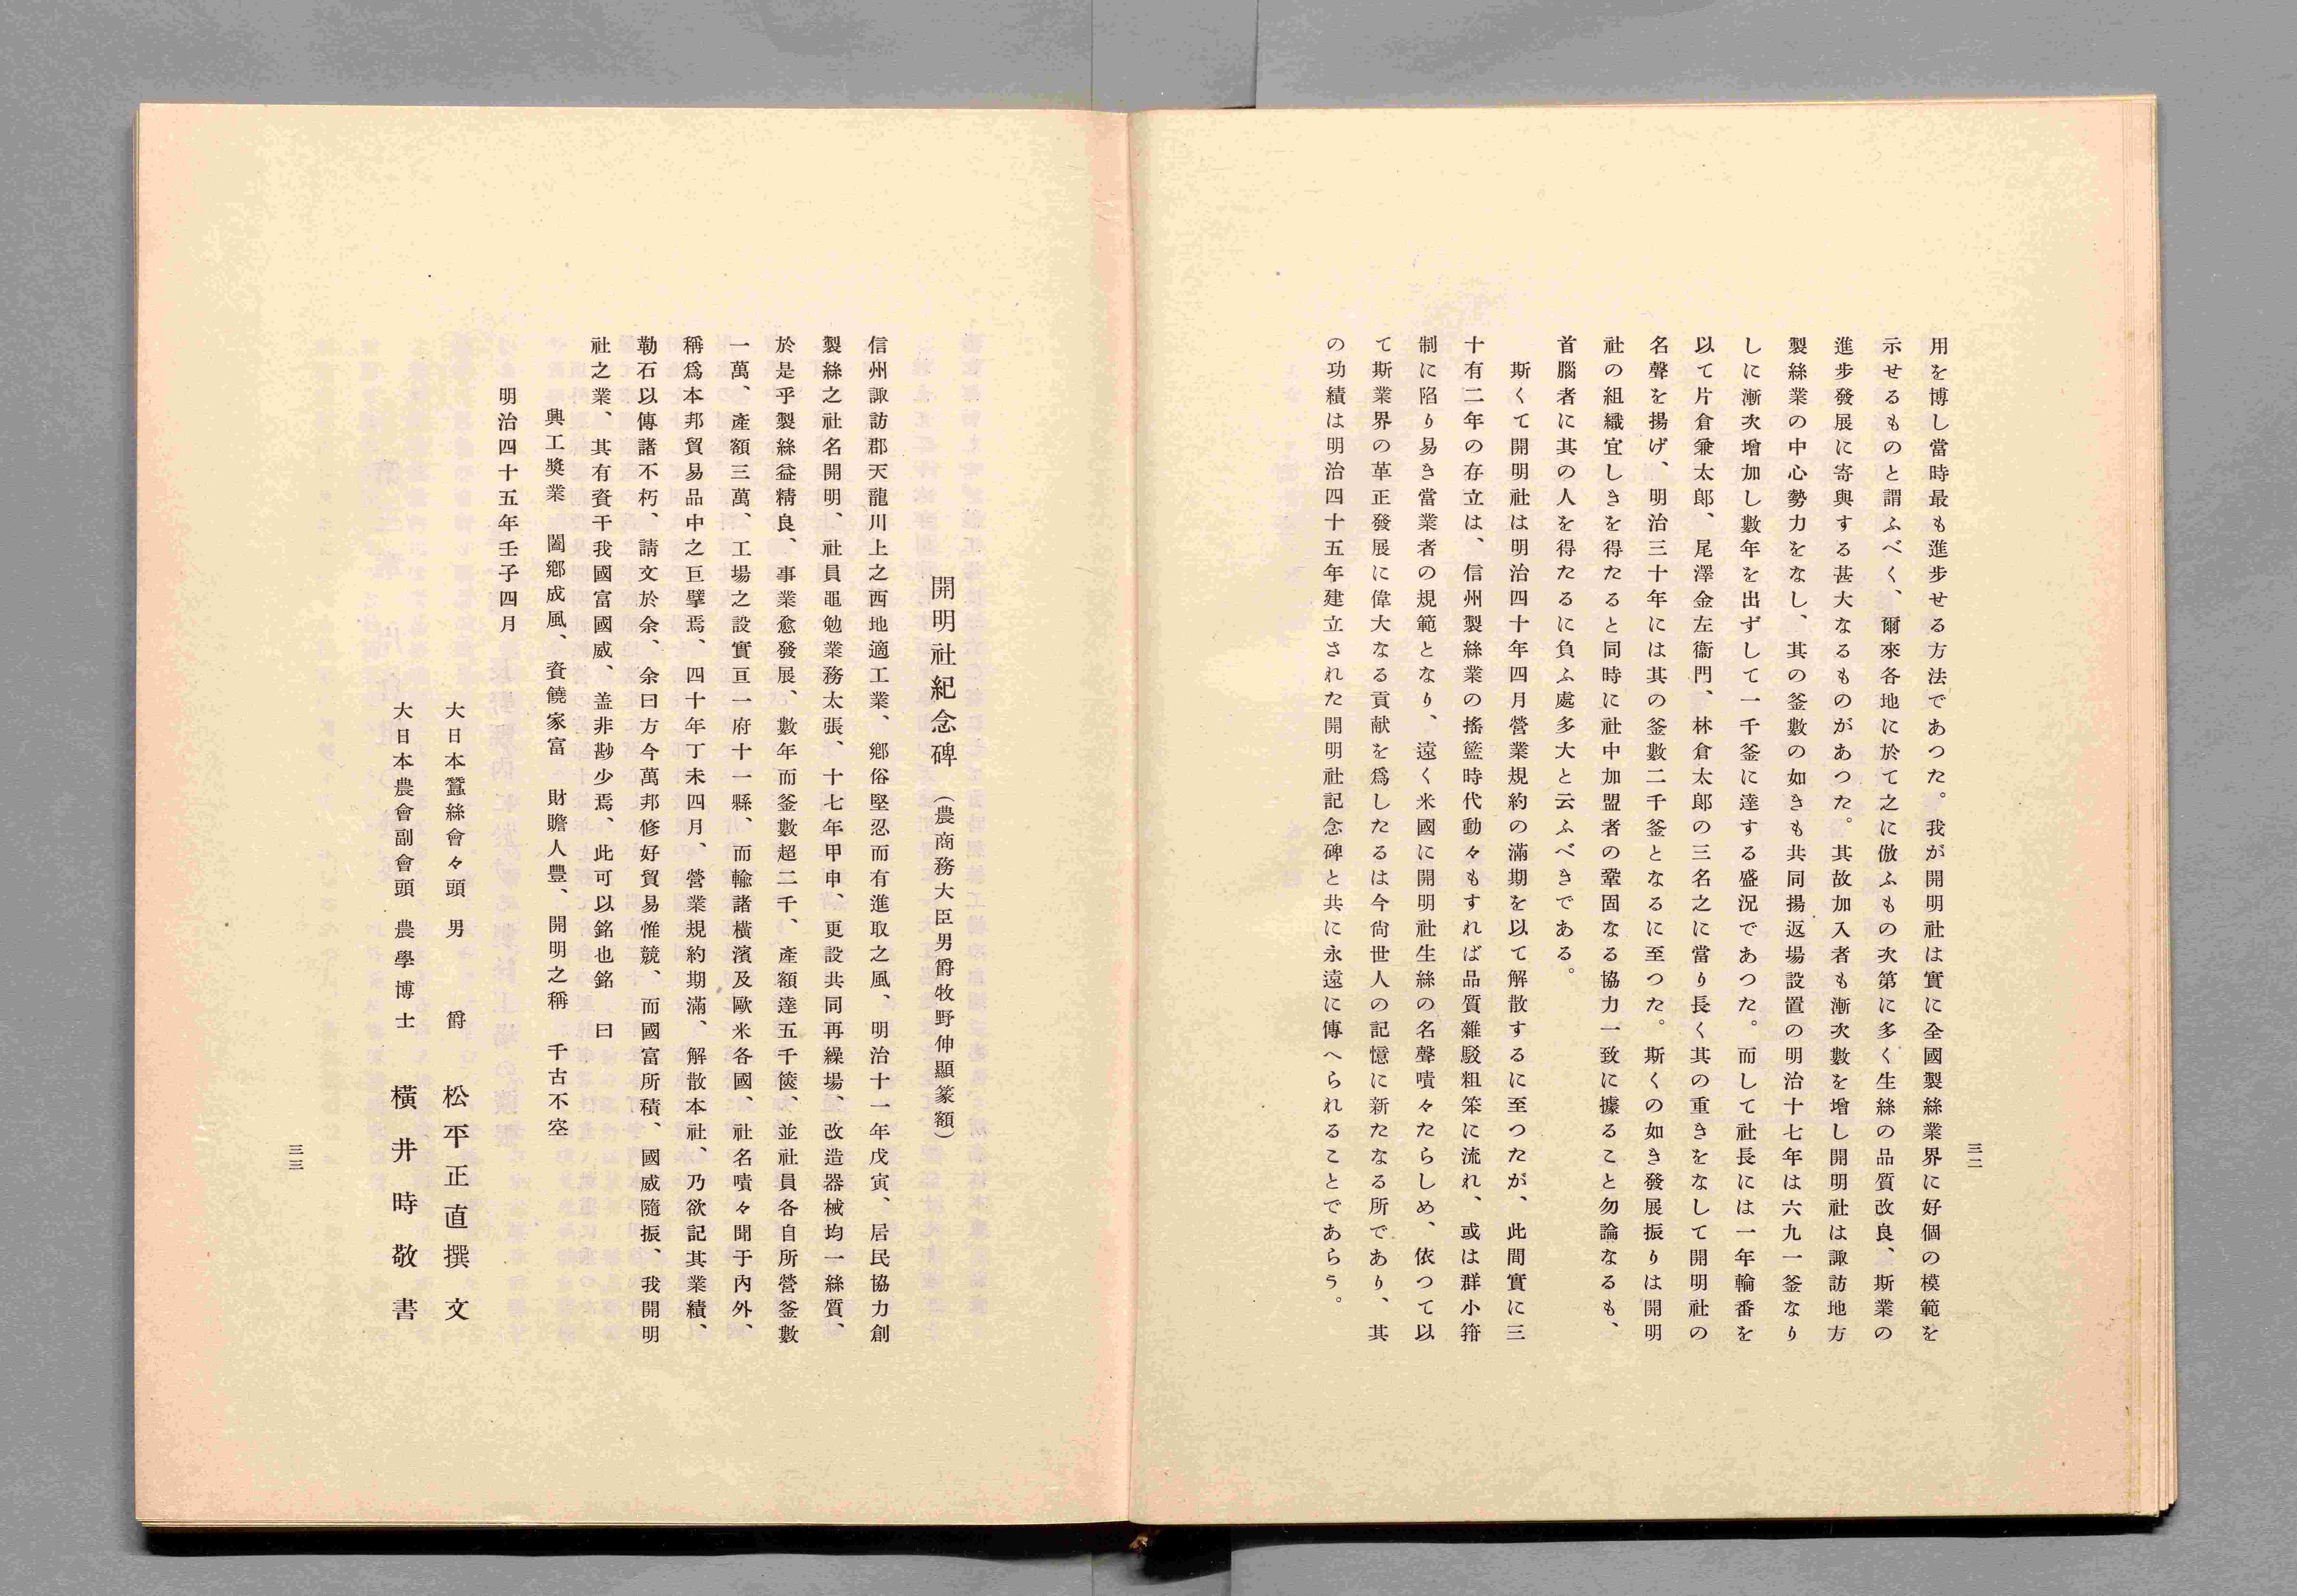 三二
用を博し當時最も進步せる方法であつた。我が開明社は實に全國製絲業界に好個の模範を
示せるものと謂ふべく、爾來各地に於て之に倣ふもの次第に多く生絲の品質改良、斯業の
進步發展に寄與する甚大なるものがあつた。其故加入者も漸次數を增し開明社は諏訪地方
製絲業の中心勢力をなし、其の釜數の如きも共同揚返場設置の明治十七年は六九一釜なり
しに漸次增加し數年を出ずして一千釜に達する盛況であつた。而して社長には一年輪番を
以て片倉兼太郎、尾澤金左衞門、林倉太郎の三名之に當り長く其の重きをなして開明社の
名聲を揚げ、明治三十年には其の釜數二千釜となるに至つた。斯くの如き發展振りは開明
社の組織宜しきを得たると同時に社中加盟者の鞏固なる協力一致に據ること勿論なるも、
首腦者に其の人を得たるに負ふ處多大と云ふべきである。
斯くて開明社は明治四十年四月營業規約の滿期を以て解散するに至つたが、此間實に三
十有二年の存立は、信州製絲業の搖籃時代動々もすれば品質雜駁粗笨に流れ、或は群小箝
制に陷り易き當業者の規範となり、遠く米國に開明社生絲の名聲嘖々たらしめ、依つて以
て斯業界の革正發展に偉大なる貢献を爲したるは今尙世人の記憶に新たなる所であり、其
の功績は明治四十五年建立された開明社記念碑と共に永遠に傳へられることであらう。
開明社紀念碑 （農商務大臣男爵牧野伸顯篆額）
信州諏訪郡天龍川上之西地適工業、鄕俗堅忍而有進取之風、明治十一年戊寅、居民協力創
製絲之社名開明、社員黽勉業務太張、十七年甲申、更設共同再繰場、改造器械均一絲質、
於是乎製絲益精良、事業愈發展、數年而釜數超二千、產額達五千篋、並社員各自所營釜數
一萬、產額三萬、工場之設實亘一府十一縣、而輸諸橫濱及歐米各國、社名嘖々聞于內外、
稱爲本邦貿易品中之巨擘焉、四十年丁未四月、營業規約期滿、解散本社、乃欲記其業績、
勒石以傳諸不朽、請文於余、余曰方今萬邦修好貿易惟競、而國富所積、國威隨振、我開明
社之業、其有資于我國富國威、盖非尠少焉、此可以銘也銘 曰
興工奬業 闔鄕成風、資饒家富 財贍人豐、開明之稱 千古不空
明治四十五年壬子四月
大日本蠶絲會々頭 男 爵 松平正直撰文
大日本農會副會頭 農學博士 橫井時敬書
三三